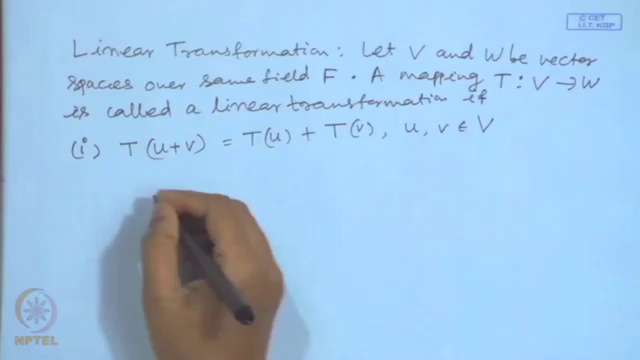 © CET
I.I.T. KGP
Linear Transformation: Let V and W be vector
spaces over same field F. A mapping T: V → W
is called a linear transformation if
(i) T(u+v) = T(u) + T(v), u, v ∈ V
NPTEL